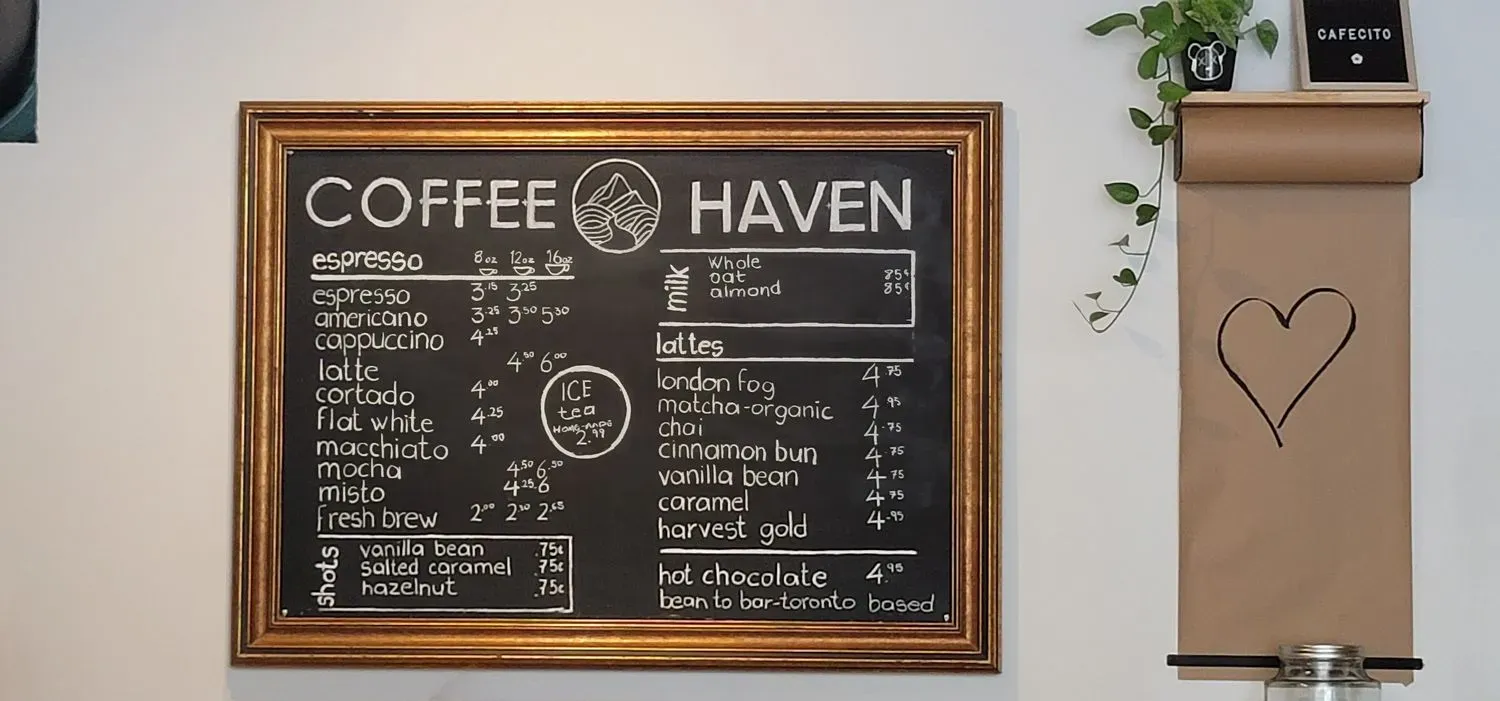 COFFEE HAVEN
espresso 8oz 12oz 16oz
espresso 3.15 3.25
americano 3.25 3.50 5.30
cappuccino 4.25
latte 4.50 6.00
cortado 4.00
flat white 4.25
macchiato 4.00
mocha 4.50 6.50
misto 4.25 6
fresh brew 2.00 2.30 2.65
shots
vanilla bean .75¢
salted caramel .75¢
hazelnut .75¢
ICE
tea
HOME-MADE
2.99
milk
Whole
oat 85¢
almond 85¢
lattes
london fog 4.75
matcha-organic 4.95
chai 4.75
cinnamon bun 4.75
vanilla bean 4.75
caramel 4.75
harvest gold 4.95
hot chocolate 4.95
bean to bar-toronto based
CAFECITO